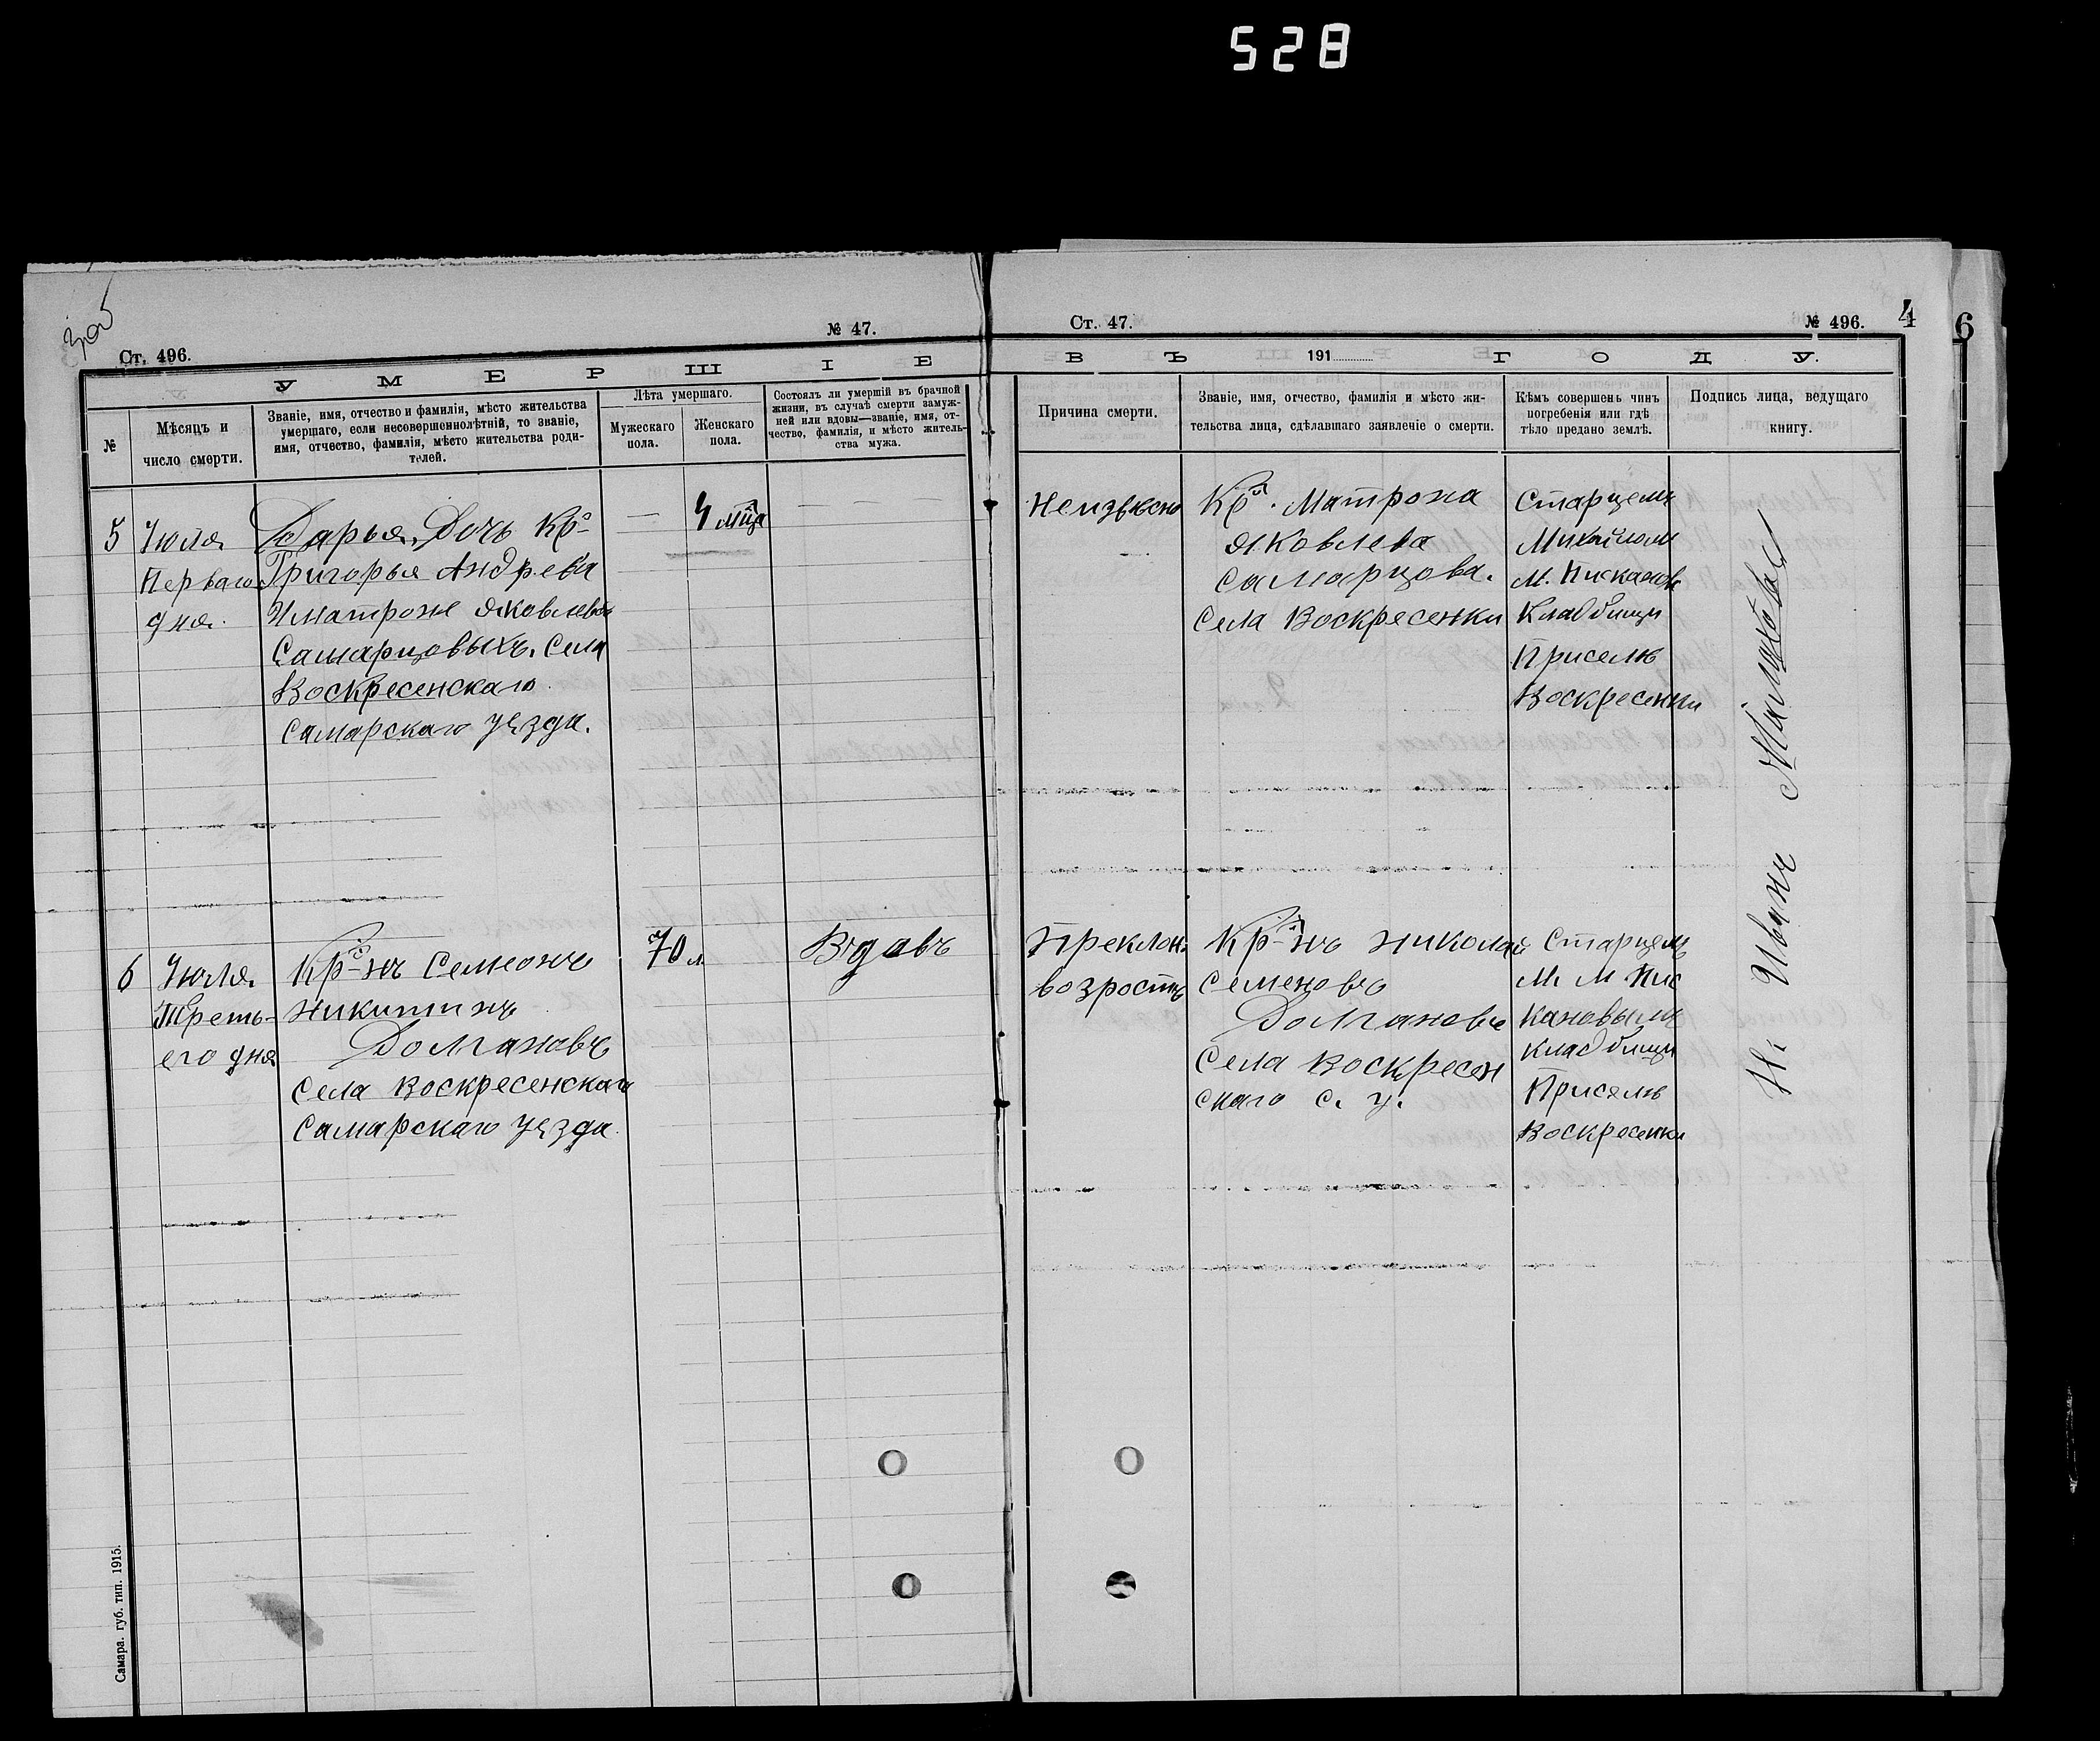 528
Ст. 496.
№ 47.
Ст. 47.
№ 496.
4
6
УМЕРШІЕ
ВЪ 191 ГОДУ.
№
Мѣсяцъ и
число смерти.
Званіе, имя, отчество и фамилія, мѣсто жительства
умершаго, если несовершеннолѣтній, то званіе,
имя, отчество, фамилія, мѣсто жительства роди-
телей.
Лѣта умершаго.
Мужескаго
пола.
Женскаго
пола.
Состоялъ ли умершій въ брачной
жизни, въ случаѣ смерти замуж-
ней или вдовы—званіе, имя, от-
чество, фамилія, и мѣсто житель-
ства мужа.
Причина смерти.
Званіе, имя, отчество, фамилія и мѣсто жи-
тельства лица, сдѣлавшаго заявленіе о смерти.
Кѣмъ совершенъ чинъ
погребенія или гдѣ
тѣло предано землѣ.
Подпись лица, ведущаго
книгу.
5
Июля
Перваго
дня.
Дарья, Дочь Кр.
Григорья Андрева
Иматроне Яковлевы
Самарцовыхъ. Села
Воскресенскаго
Самарскаго уѣзда.
—
4 мца
—
Неизвѣсно
Кр. Матрона
Яковлева
Самарцова.
Села Воскресенки
Старцемъ
Михайлом
М. Писканов
Кладбищи
Приселѣ
Воскресенки
6
Июля.
Треть-
его дня
Кр-нъ Семеонъ
Никитинъ
Долгановъ
Села Воскресенскаго
Самарскаго уѣзда.
70 л.
Вдовъ
Преклон.
возростъ
Кр-нъ Николай
Семеновъ
Долгановъ
Села Воскресен
скаго С. у.
Старцемъ
М. М. Пис
кановымъ
Кладбищи
Приселѣ
Воскресенки
Иванъ
Самара. губ. тип. 1915.